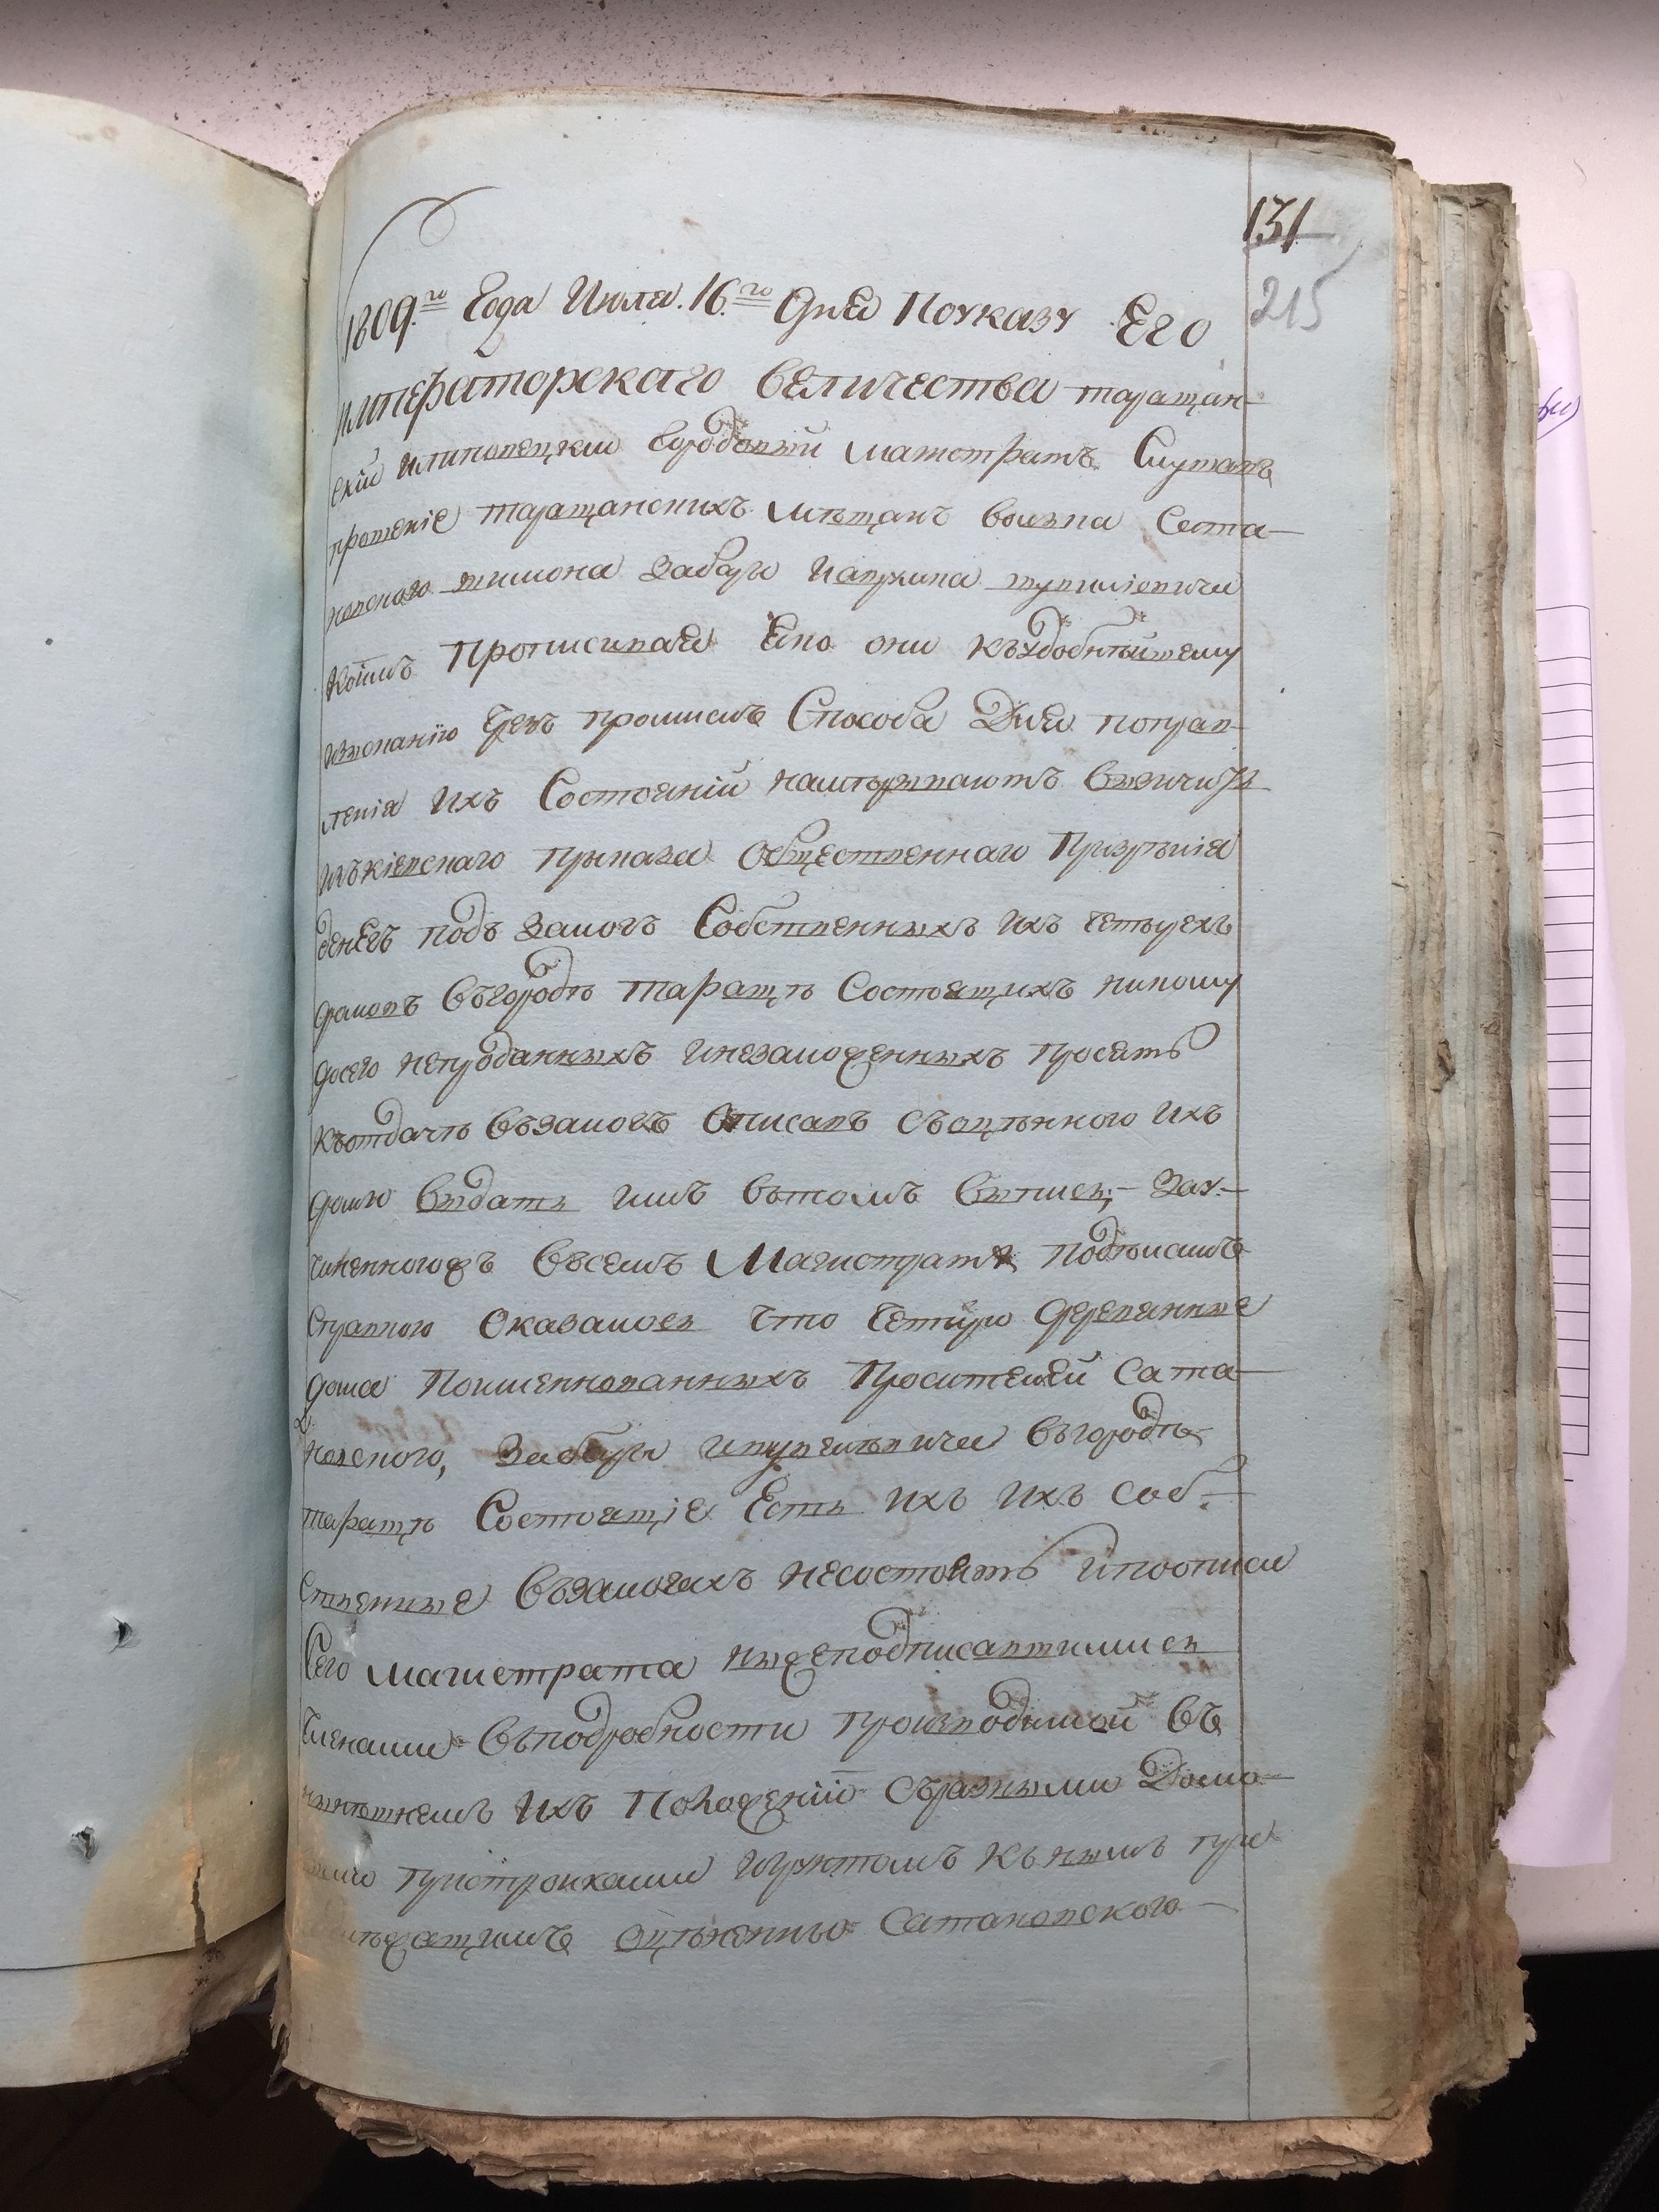 131
215
1809.го Года Июля. 16.го Дня Поуказу Его
императорскаго величества таращан-
ский илиповецкии городовый магистратъ Слушавъ
прошение таращанскихъ мѣщанъ
Тимона Забары
коимъ Прописивая что они къудобнѣйшему
промисмъ Способа Для поправ-
ления ихъ Состоянiй намѣриваютъ
изъкiевского приказа Общественнаго Призрѣнiя
денегъ подъ залогъ Собственныхъ ихъ четырехъ
домовъ въгородѣ таращѣ Состоящихъ никому
досего непроданныхъ инезаложенныхъ просятъ
къотдачѣ възалогъ Описавъ съоцѣнкою ихъ
домы выдать имъ вътомъ выписъ,- Зау-
чиненноюжъ въсемъ Магистратѣ подлисамъ
Справкою Оказалось что четыри деревянние
дома Поименнованныхъ Просителей Сата-
новского, Забары въгородѣ
таращѣ Состоящiе Есть ихъ ихъ соб-
ственние възалогахъ несостоятъ ипоописи
Сего магистрата нижеподписавшимися
членами въподробности производимой въ
нынѣшнемъ ихъ Положенiи съразными Домо-
пристройками игрунтомъ къ нымъ при
оцѣненно Сатановского